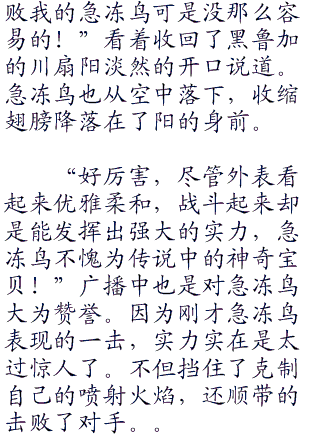 败我的急冻鸟可是没那么容
易的！”看着收回了黑鲁加
的川扇阳淡然的开口说道。
急冻鸟也从空中落下，收缩
翅膀降落在了阳的身前。
“好厉害，尽管外表看
起来优雅柔和，战斗起来却
是能发挥出强大的实力，急
冻鸟不愧为传说中的神奇宝
贝！”广播中也是对急冻鸟
大为赞誉。因为刚才急冻鸟
表现的一击，实力实在是太
过惊人了。不但挡住了克制
自己的喷射火焰，还顺带的
击败了对手。。